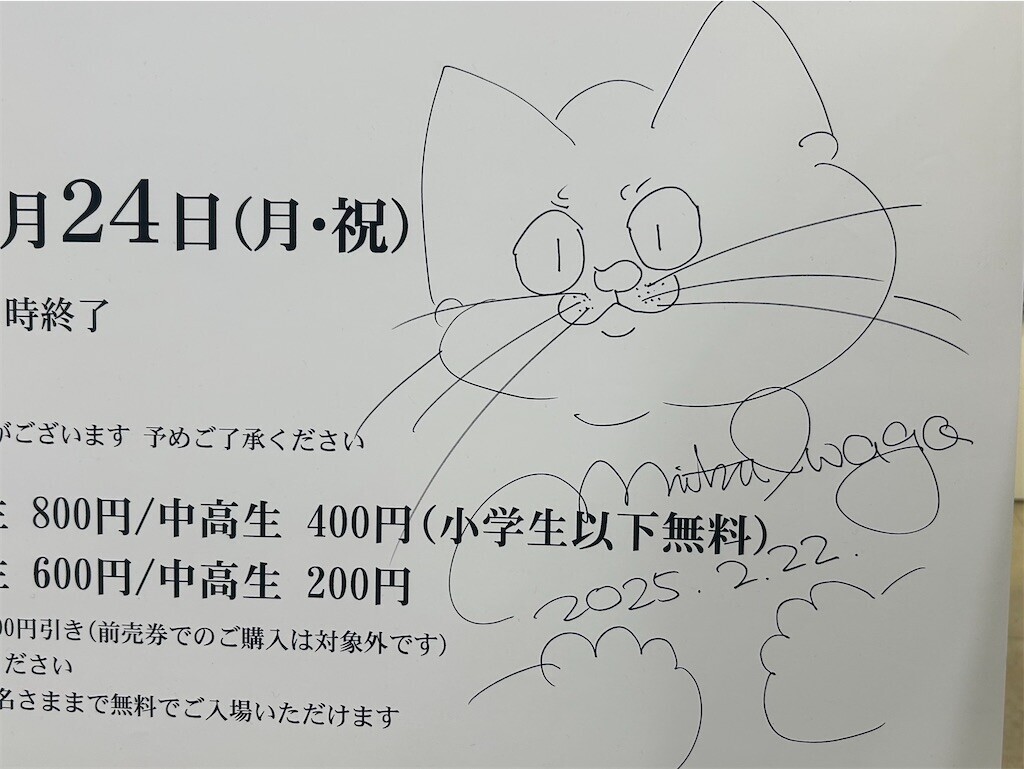 月24日(月・祝)
時終了
がございます 予めご了承ください
800円/中高生 400円(小学生以下無料)
600円/中高生 200円
00円引き(前売券でのご購入は対象外です)
ください
名さままで無料でご入場いただけます
Mitsu Iwago
2025.2.22.